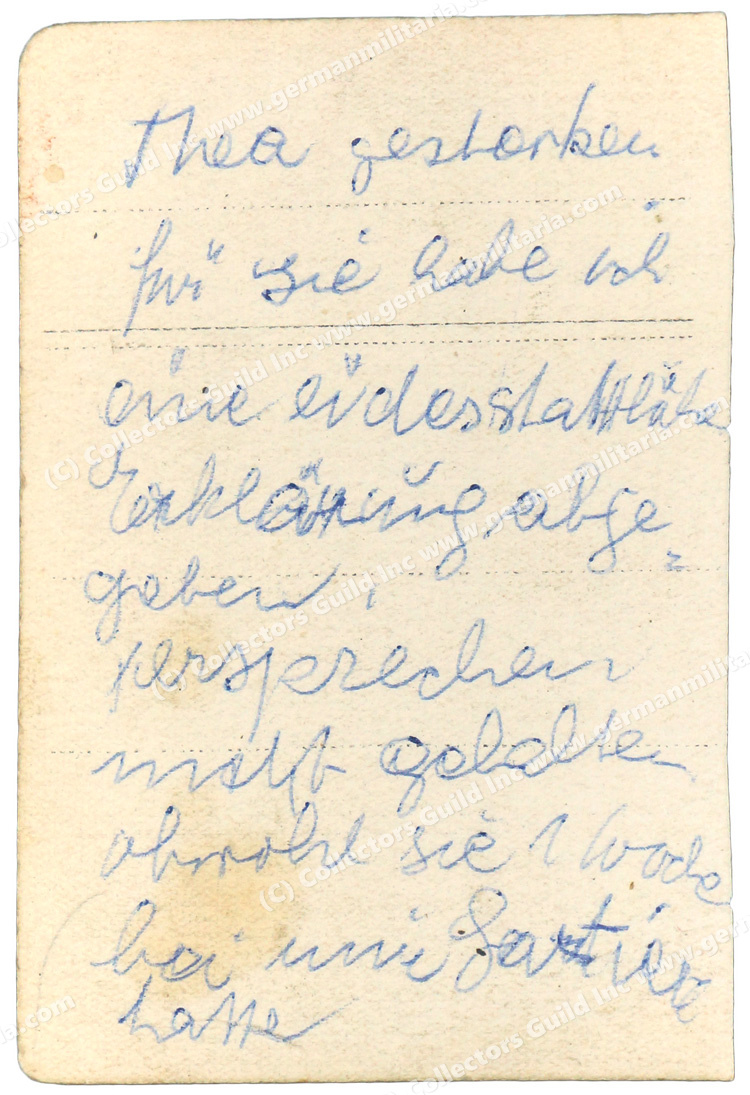 Thea gestorben.
für sie habe ich
eine eidesstattliche
Erklärung abge-
geben.
versprechen
nicht gehalten
obwohl sie 1 Woche
bei mir Quartier
hatte
(C) Collectors Guild Inc www.germanmilitaria.com